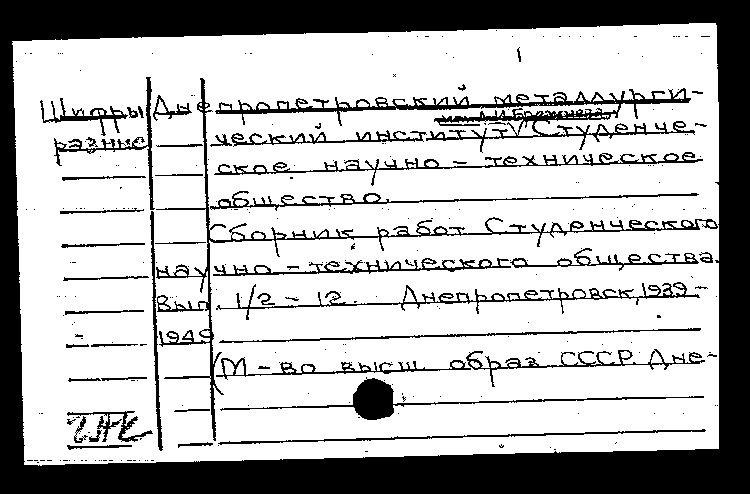 1
Шифры Днепропетровский металлурги-
им. Л.И. Брежнева
разные ческий институт V Студенче-
ское научно - техническое
общество.
Сборник работ Студенческого
научно - технического общества.
Вып. 1/2 - 12. Днепропетровск, 1939 -
1949
(М - во высш. образ СССР. Дне-